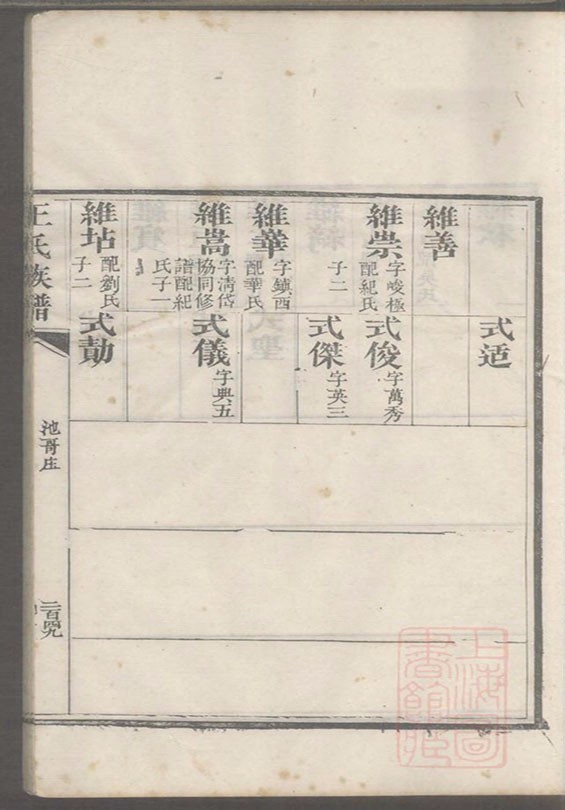 式适
維善
維崇
字峻極
配紀氏
子二
式俊
字萬秀
式傑
字英三
維華
字鎮西
配華氏
維嵩
字清岱
協同修
譜配紀
氏子一
式儀
字典五
維坫
配劉氏
子二
式勣
王氏族譜
池哥庄
上海圖
書館藏